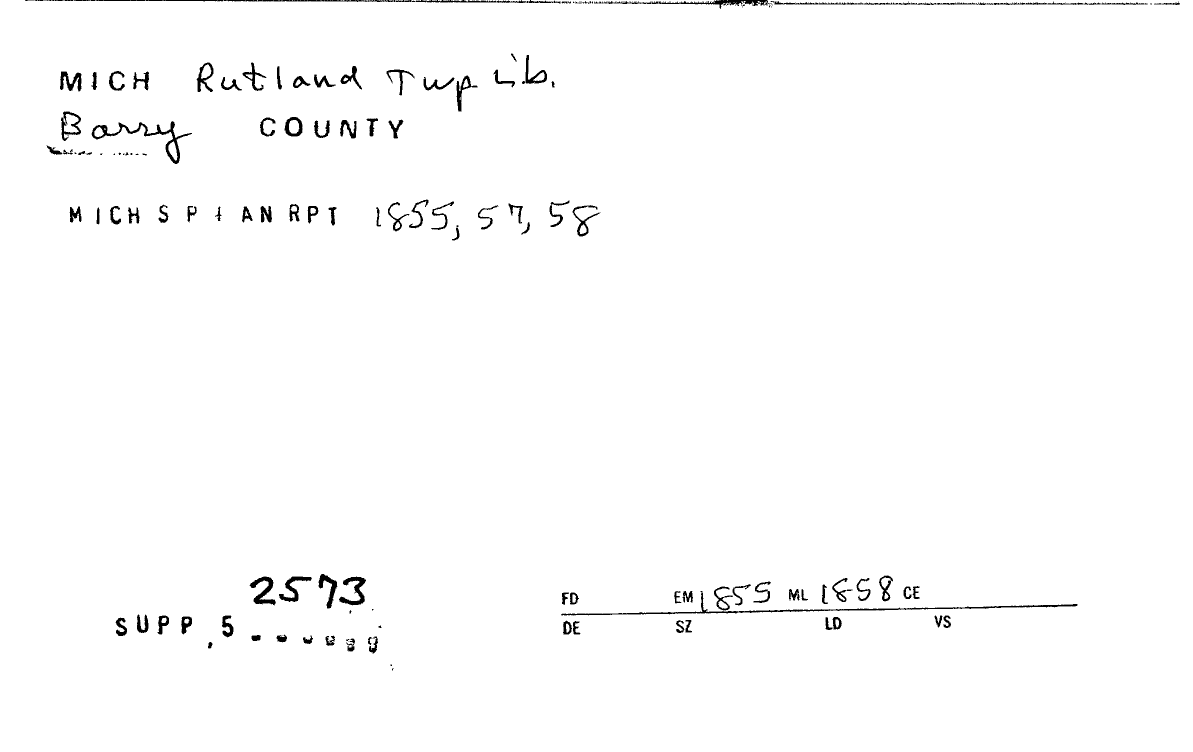 MICH Rutland Twp Lib.
Barry COUNTY
MICH S P I AN RPT 1855, 57, 58
2573
SUPP, 5
FD EM 1855 ML 1858 CE
DE SZ LD VS